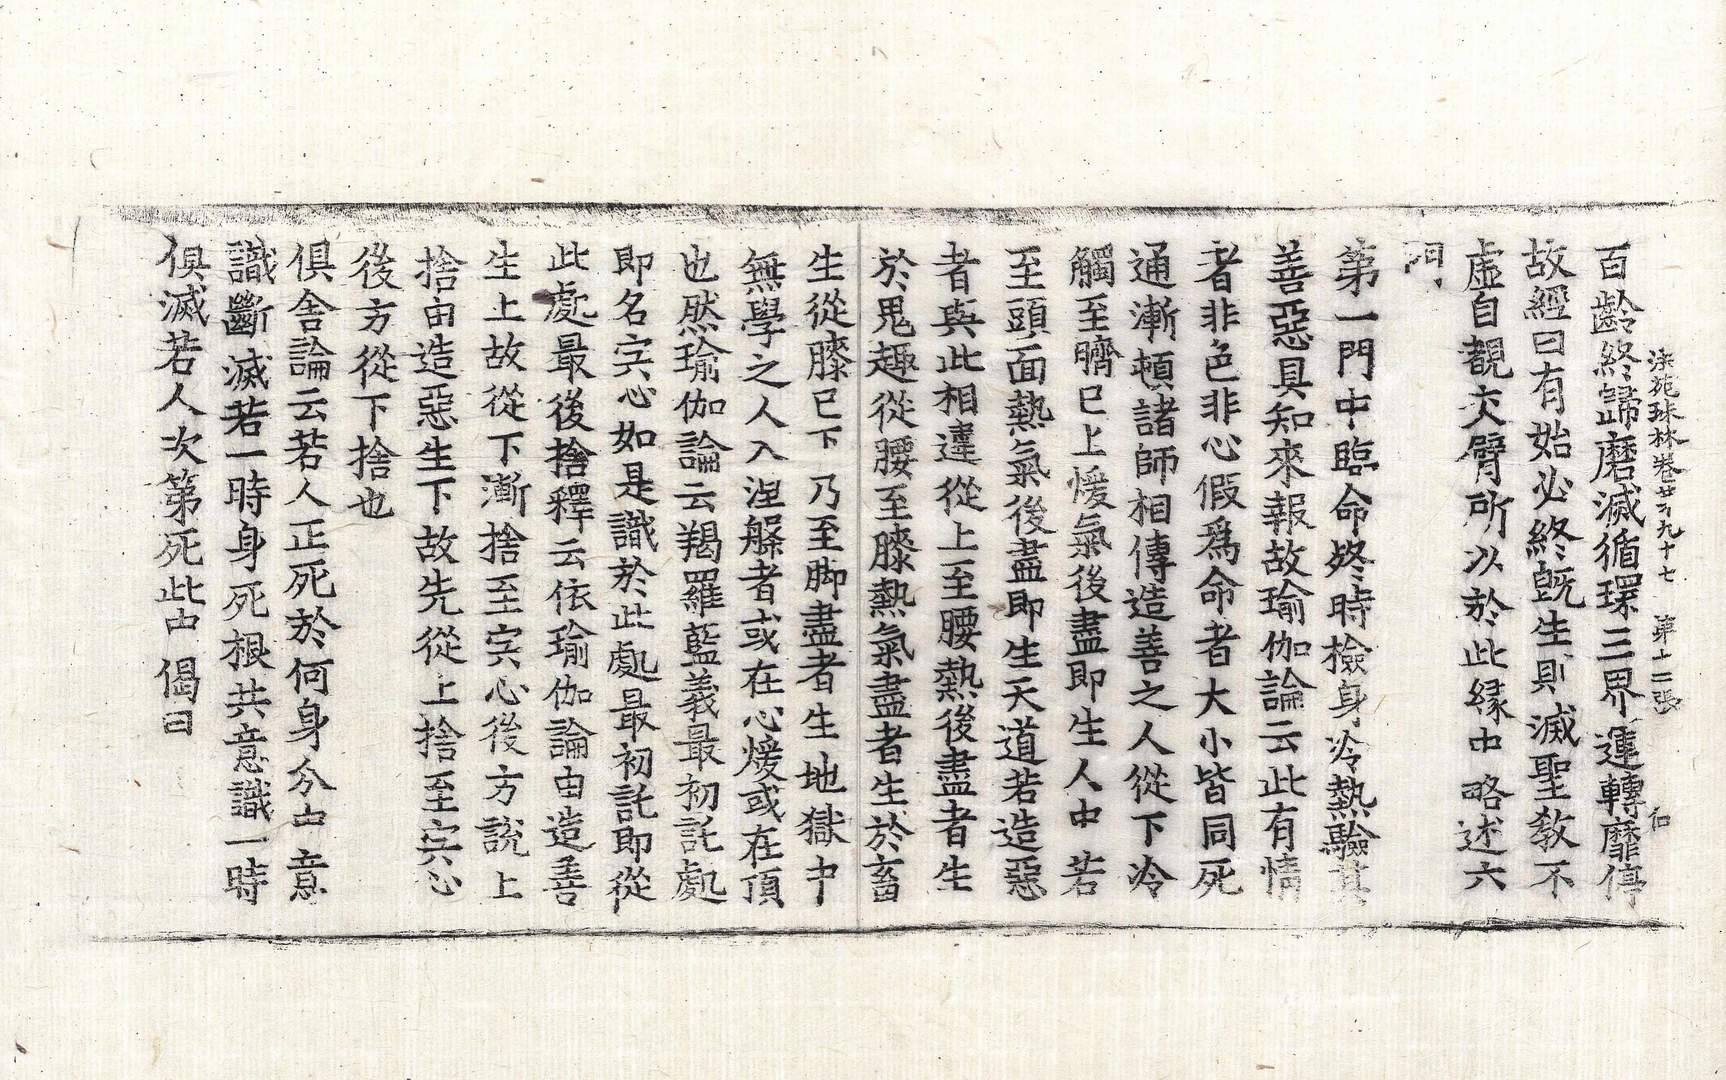 法苑珠林卷第九十七 第十二張 𠰥
百齡終歸磨滅循環三界運轉靡停
故經曰有始必終旣生則滅聖教不
虛自覩交臂所以於此緣中略述六
門
第一門中臨命終時檢身冷熱驗其
善惡具知來報故瑜伽論云此有情
者非色非心假爲命者大小皆同死
通漸頓諸師相傳造善之人從下冷
觸至臍已上煖氣後盡即生人中若
至頭面熱氣後盡即生天道若造惡
者與此相違從上至腰熱後盡者生
於鬼趣從腰至膝熱氣盡者生於畜
生從膝已下乃至脚盡者生地獄中
無學之人入涅槃者或在心煖或在頂
也然瑜伽論云羯羅藍義最初託處
即名宍心如是識於此處最初託即從
此處最後捨釋云依瑜伽論由造善
生上故從下漸捨至宍心後方說上
捨由造惡生下故先從上捨至宍心
後方從下捨也
俱舍論云若人正死於何身分中意
識斷滅若一時身死根共意識一時
俱滅若人次第死此中偈曰